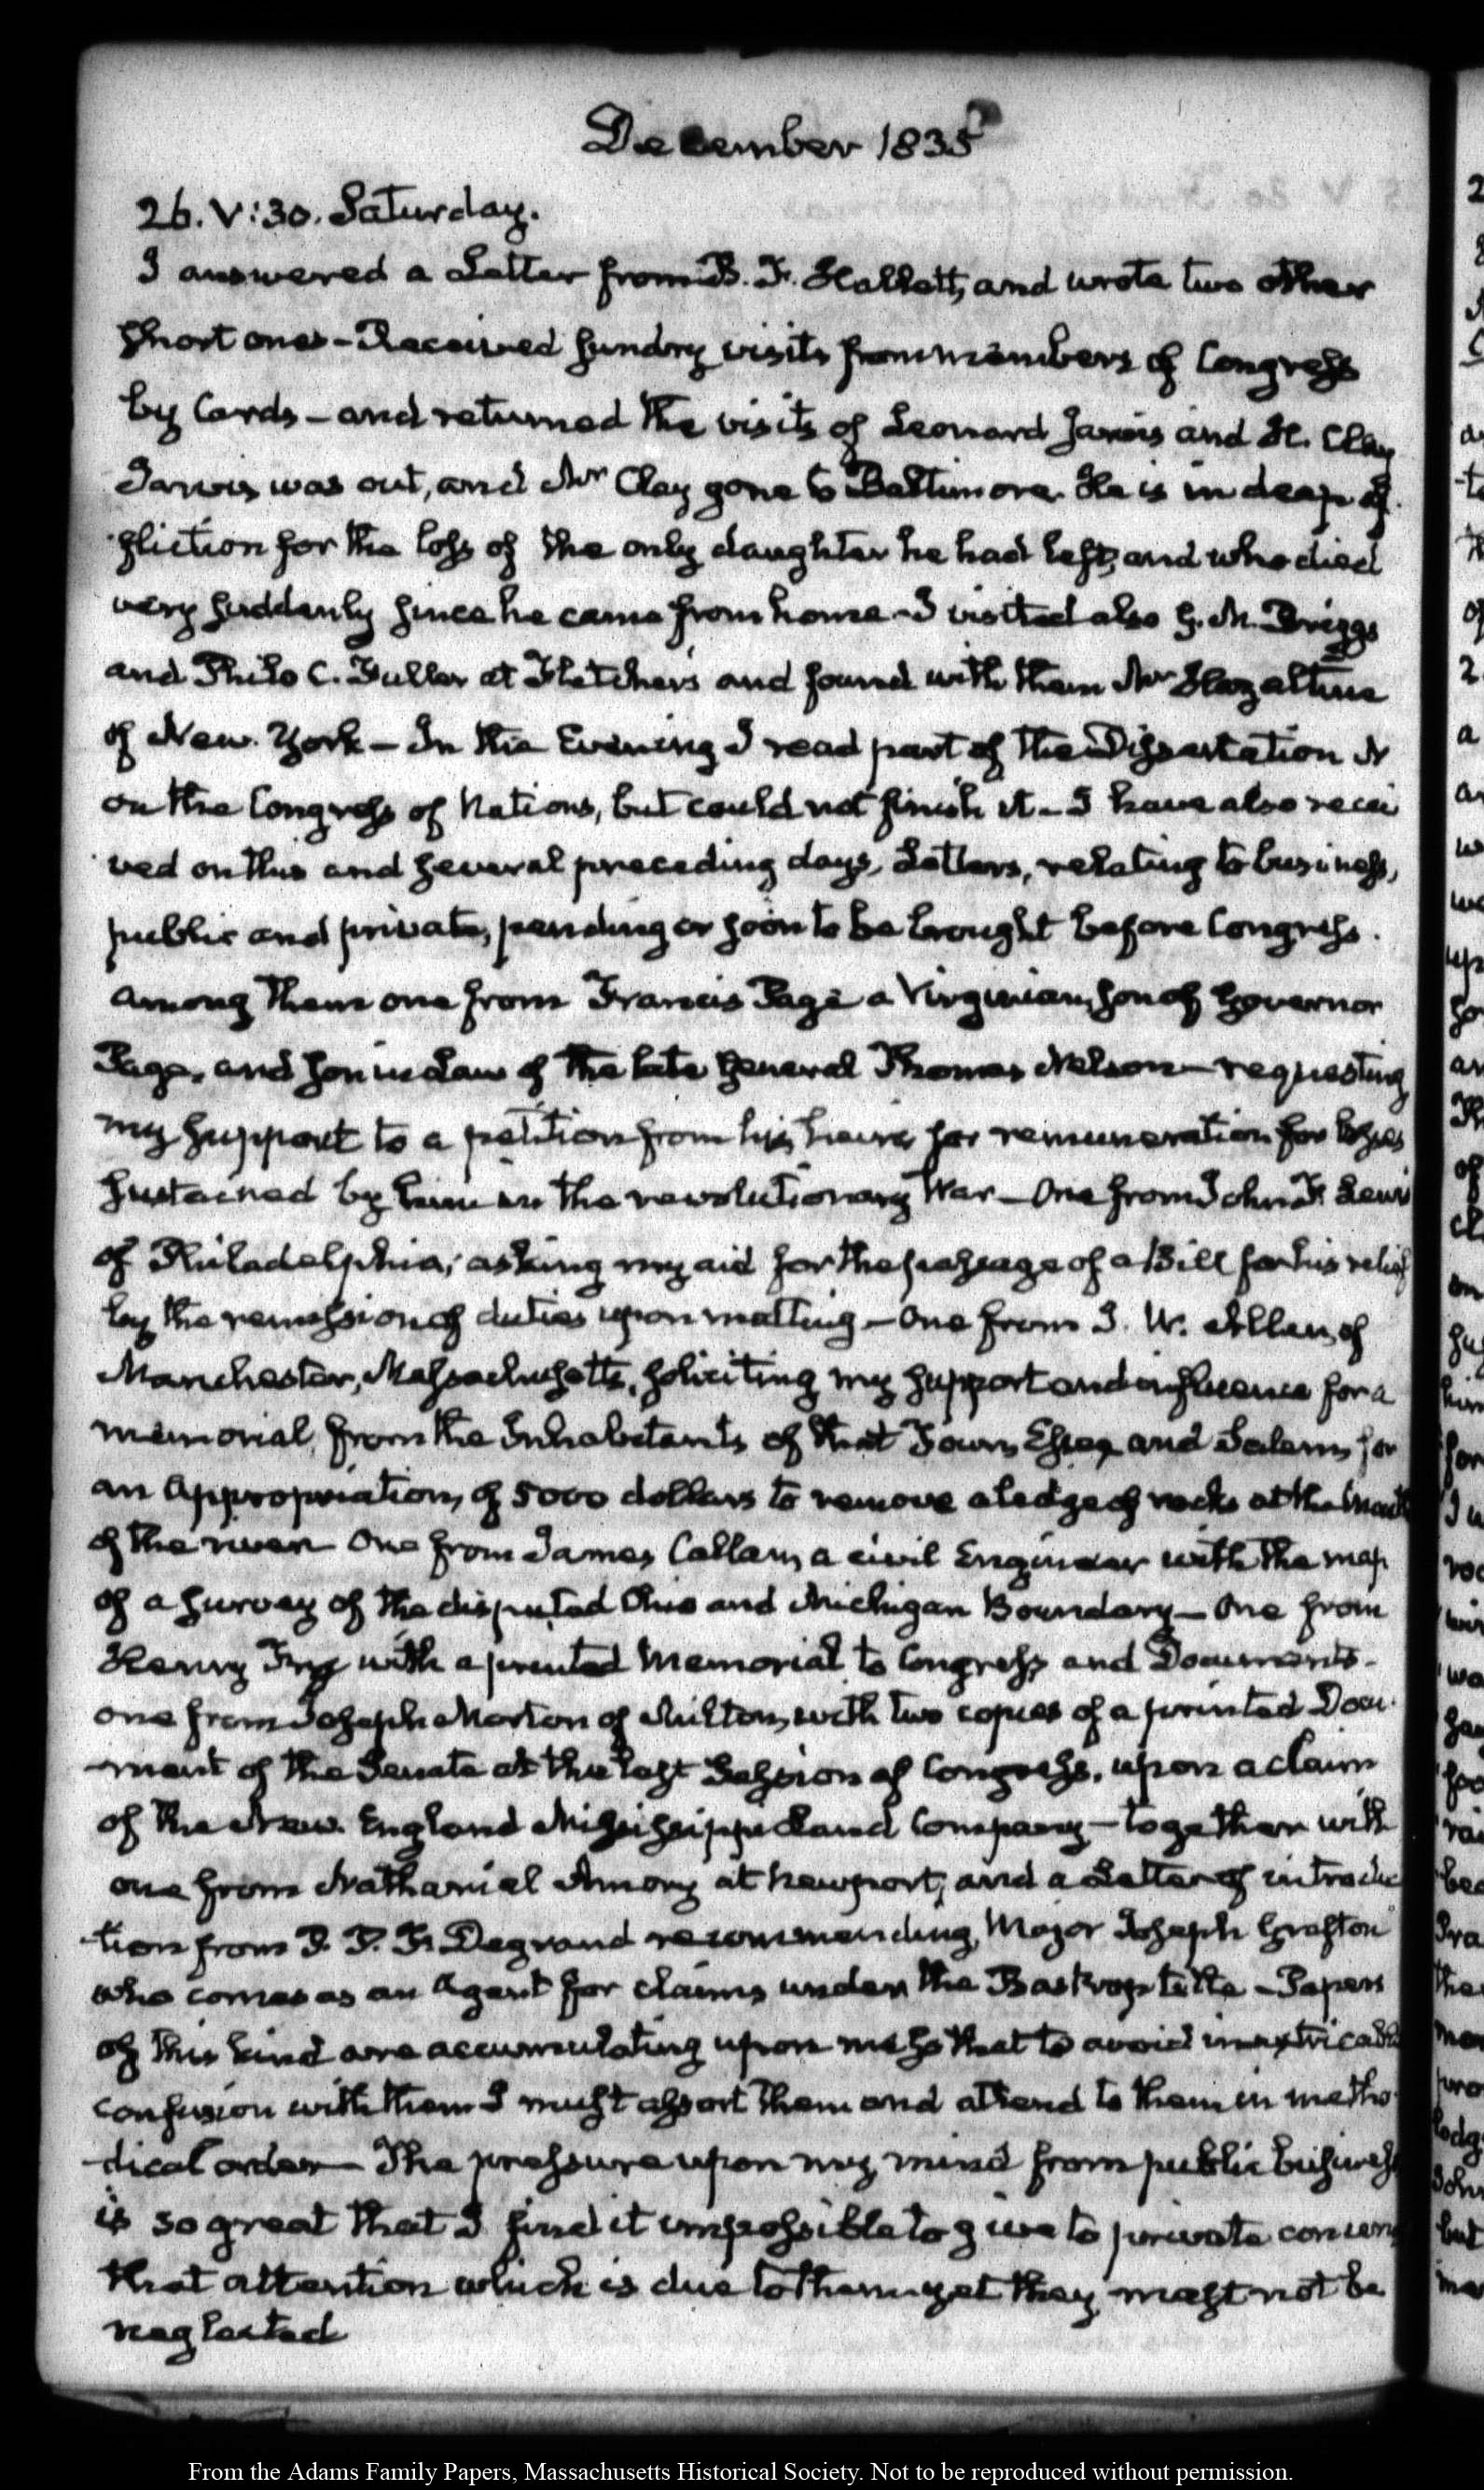 December 1835
26. V:30. Saturday.
I answered a Letter from B. F. Hallett, and wrote two other
short ones - Received sundry visits from members of Congress
by Cards - and returned the visits of Leonard Jarvis and H. Clay
Jarvis was out, and Mr Clay gone to Baltimore. He is in deep af
fliction for the loss of the only daughter he had left, and who died
very suddenly since he came from home - I visited also G. N. Briggs
and Philo C. Fuller at Fletcher's and found with them Mr Hazeltine
of New-York - In the Evening I read part of the Dissertation N
on the Congress of Nations, but could not finish it - I have also recei
ved on this and several preceding days, Letters, relating to business,
public and private, pending or soon to be brought before Congress.
Among them one from Francis Page a Virginian, son of Governor
Page, and son in law of the late General Thomas Nelson - requesting
my support to a petition from his heirs for remuneration for losses
sustained by him in the revolutionary War - One from John F. Lewis
of Philadelphia, asking my aid for the passage of a Bill for his relief
by the remission of duties upon matting - One from J. W. Allen of
Manchester, Massachusetts, soliciting my support and influence for a
memorial from the Inhabitants of that Town, Essex and Salem, for
an Appropriation, of 5000 dollars to remove a ledge of rocks at the mouth
of the river - One from James Collam, a civil Engineer with the map
of a survey of the disputed Ohio and Michigan Boundary - One from
Henry Fry with a printed Memorial to Congress and Documents -
one from Joseph Morton of Milton, with two copies of a printed Docu-
-ment of the Senate at the last Session of Congress, upon a claim
of the New England Mississippi Land Company - together with
one from Nathaniel Amory at Newport, and a Letter of introduc
tion from P. P. F. Degrand recommending Major Joseph Grafton
who comes as an Agent for claims under the Bastrop title - Papers
of this kind are accumulating upon me so that to avoid inextricable
confusion with them I must assort them and attend to them in metho
-dical order - The pressure upon my mind from public business
is so great that I find it impossible to give to private concerns
that attention which is due to them, yet they must not be
neglected
From the Adams Family Papers, Massachusetts Historical Society. Not to be reproduced without permission.